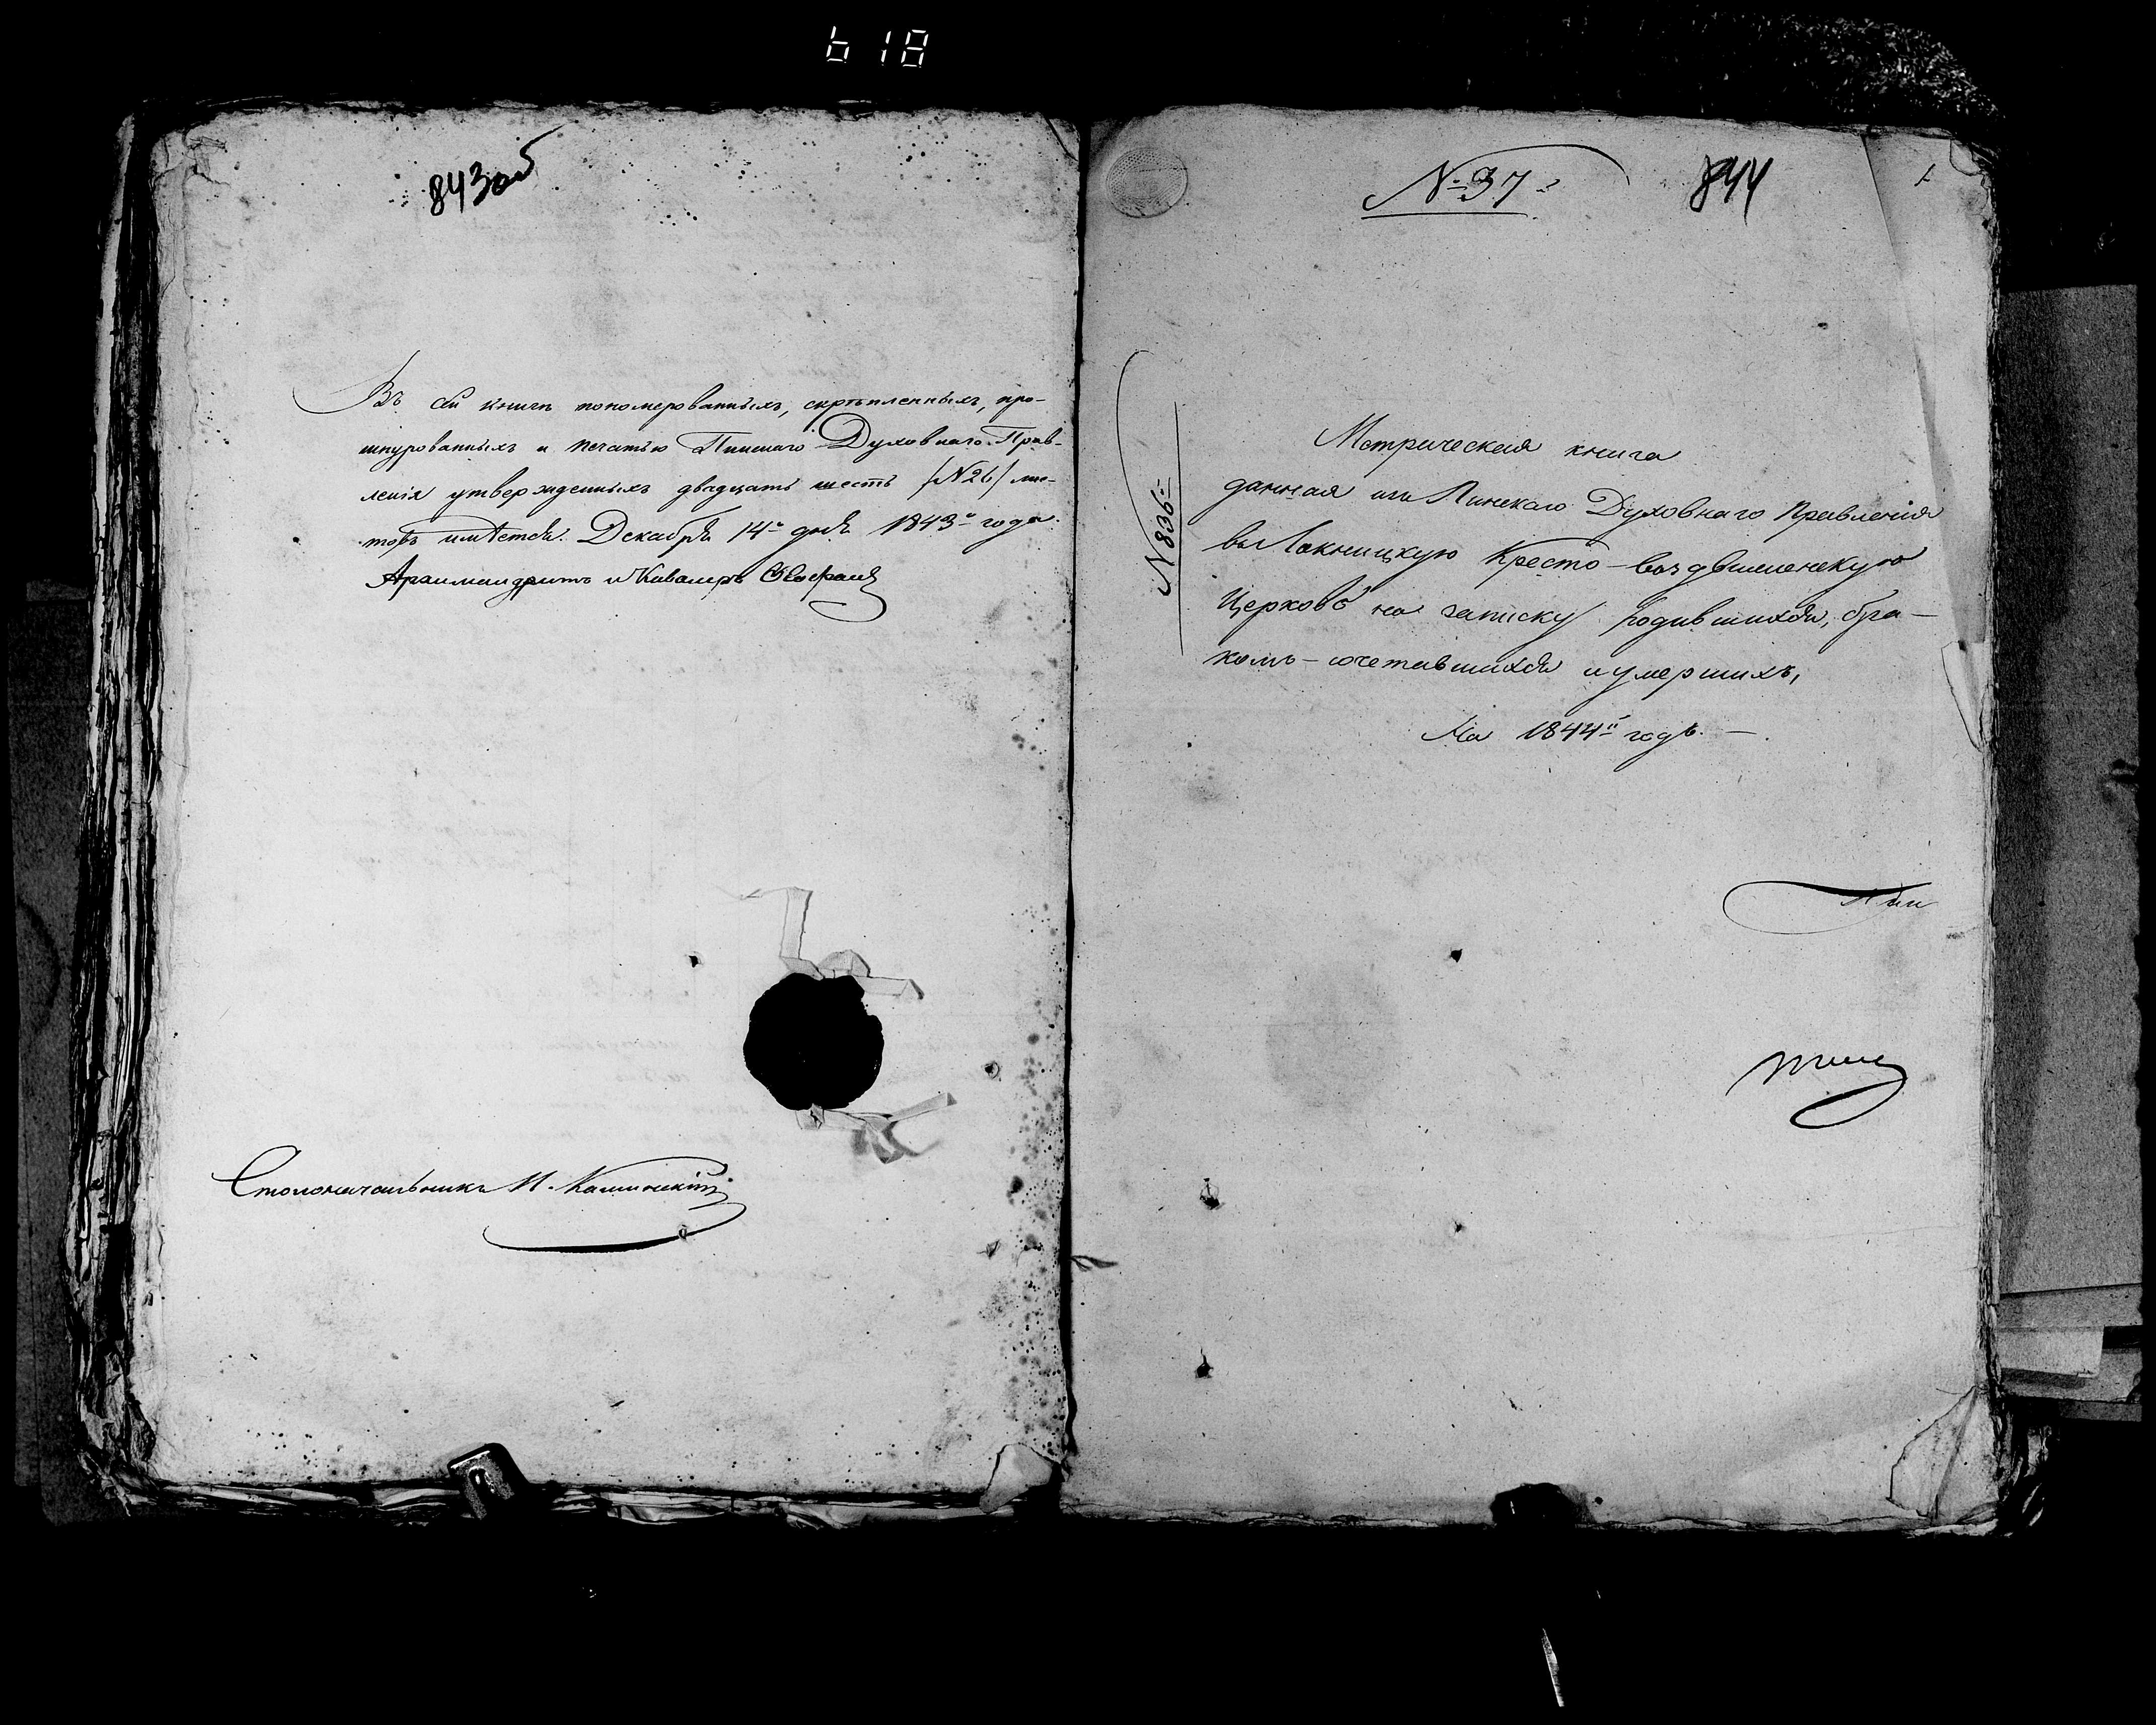 618
843 об
Въ сей книгѣ пономерованныхъ, скрѣпленныхъ, про-
шнурованныхъ и печатью Пинскаго Духовнаго Прав-
ленія утвержденныхъ двадцать шесть /№ 26/ лис-
товъ имѣется. Декабря 14го дня 1843го года.
Архимандритъ и Кавалеръ
Столоначальникъ И. Калинскій
№ 37й
844
1
№ 836й
Метрическая книга
данная изъ Пинскаго Духовнаго Правленія
въ Локницкую Кресто-воздвиженскую
Церковь на записку родившихся, бра-
комъ-сочетавшихся и умершихъ,
На 1844й годъ.